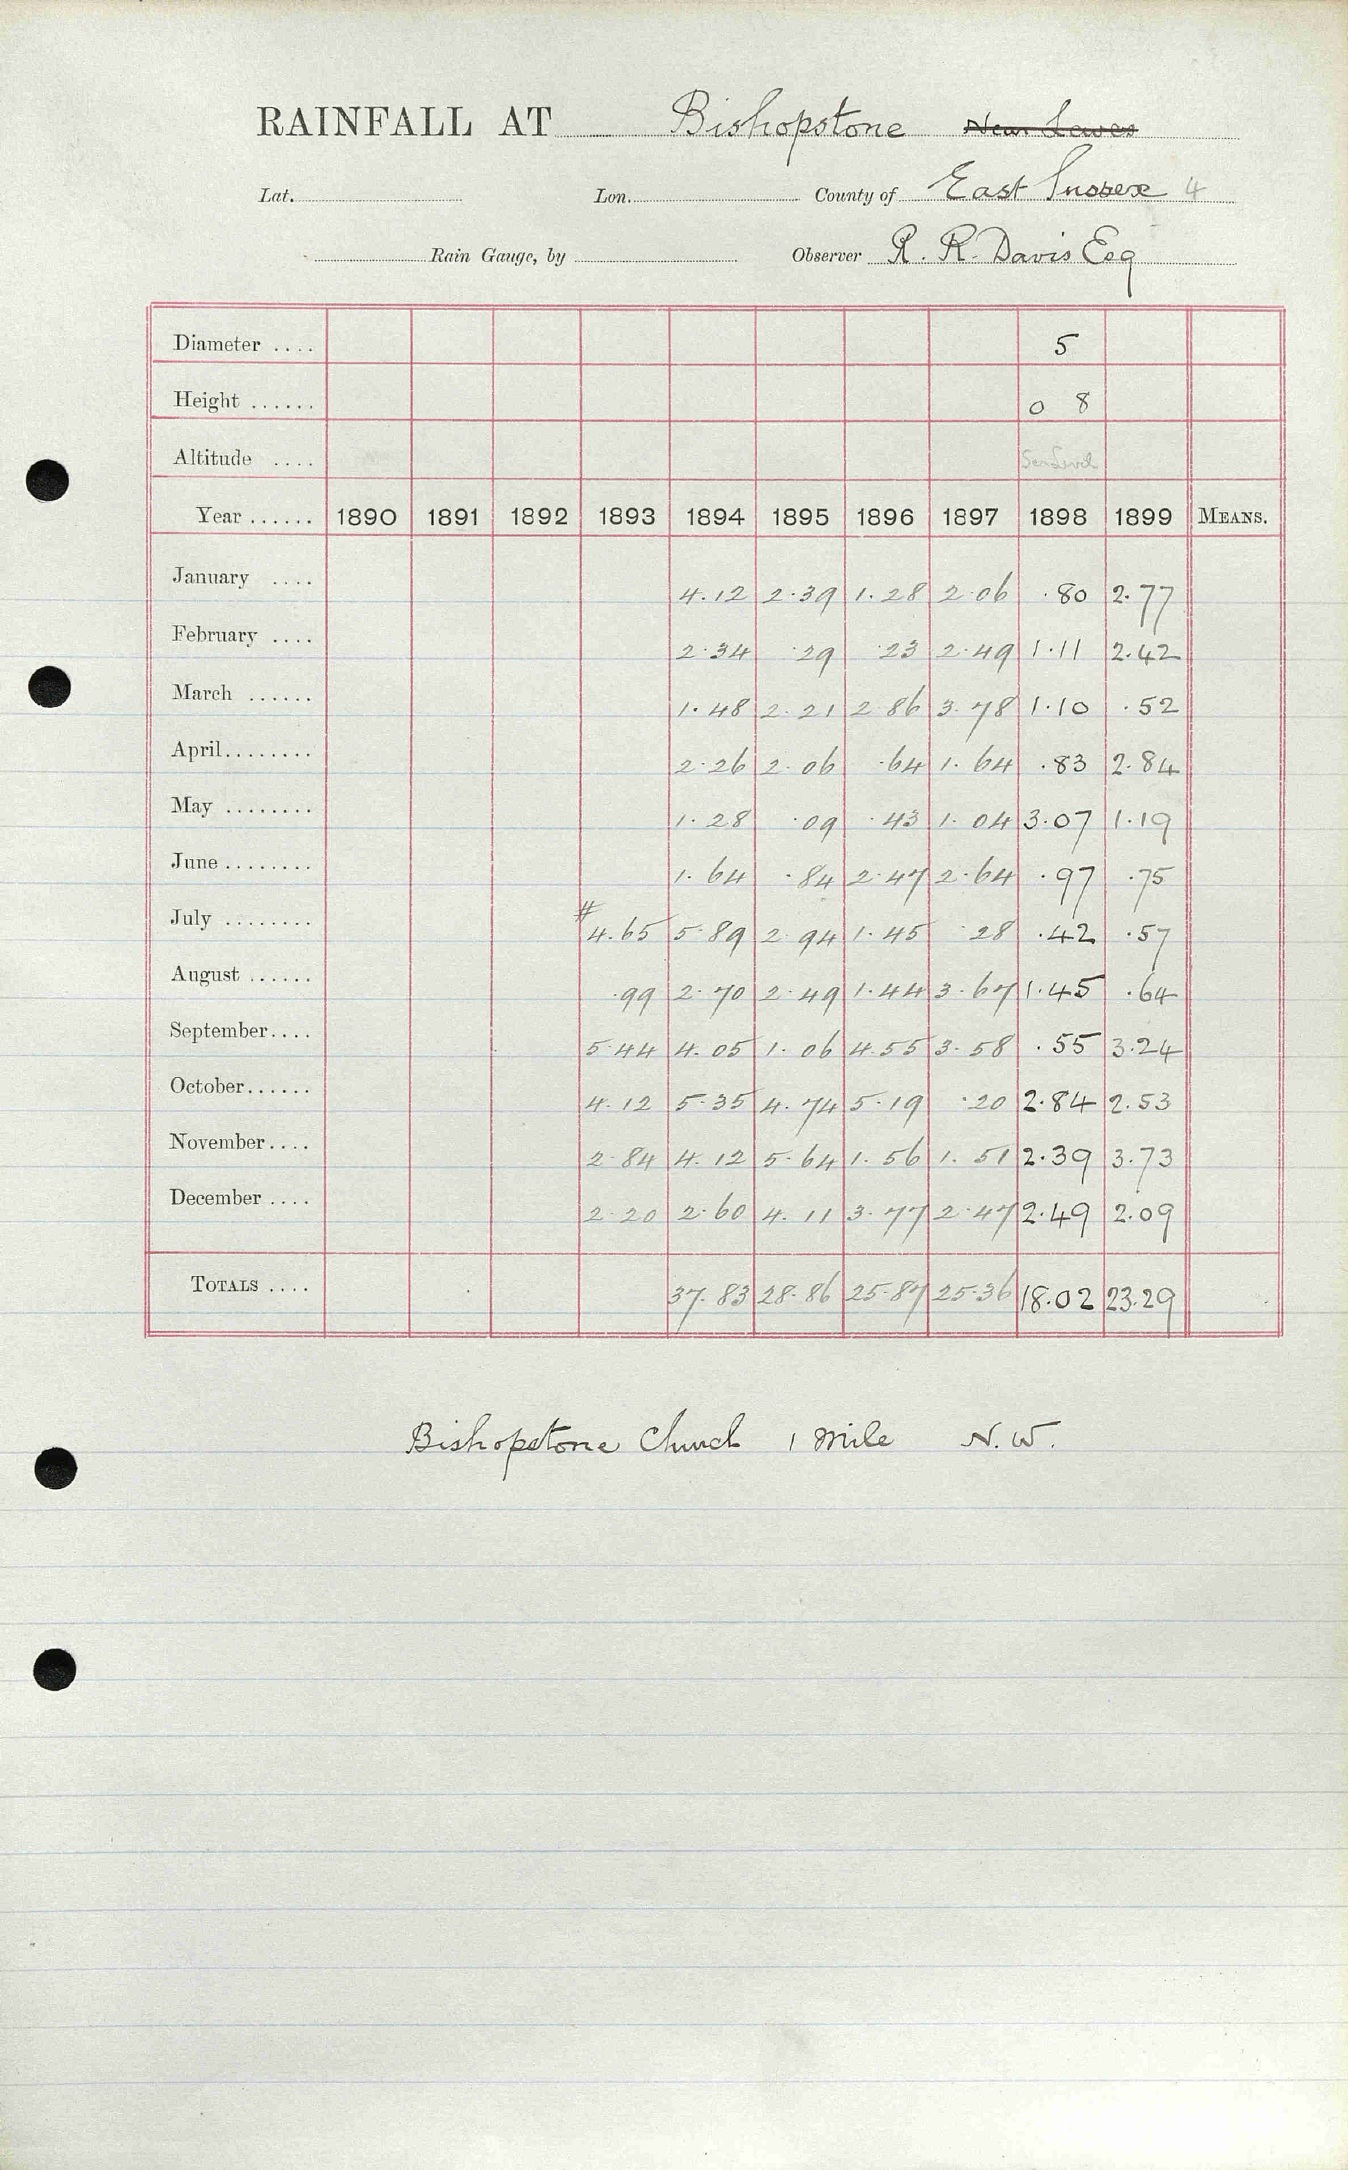 RAINFALL AT Bishopstone Near Lewes
Lat. Lon. County of East Sussex 4
Rain Gauge, by Observer R. R. Davis Esq
Diameter .... 5
Height ...... 0 8
Altitude .... Sea Level
Year ...... 1890 1891 1892 1893 1894 1895 1896 1897 1898 1899 MEANS.
January .... 4.12 2.39 1.28 2.06 .80 2.77
February .... 2.34 .29 .23 2.49 1.11 2.42
March ...... 1.48 2.21 2.86 3.78 1.10 .52
April........ 2.26 2.06 .64 1.64 .83 2.84
May ........ 1.28 .09 .43 1.04 3.07 1.19
June ........ 1.64 .84 2.47 2.64 .97 .75
July ........ # 4.65 5.89 2.94 1.45 .28 .42 .57
August ...... .99 2.70 2.49 1.44 3.67 1.45 .64
September.... 5.44 4.05 1.06 4.55 3.58 .55 3.24
October...... 4.12 5.35 4.74 5.19 .20 2.84 2.53
November.... 2.84 4.12 5.64 1.56 1.51 2.39 3.73
December .... 2.20 2.60 4.11 3.77 2.47 2.49 2.09
TOTALS .... 37.83 28.86 25.87 25.36 18.02 23.29
Bishopstone Church 1 mile N.W.